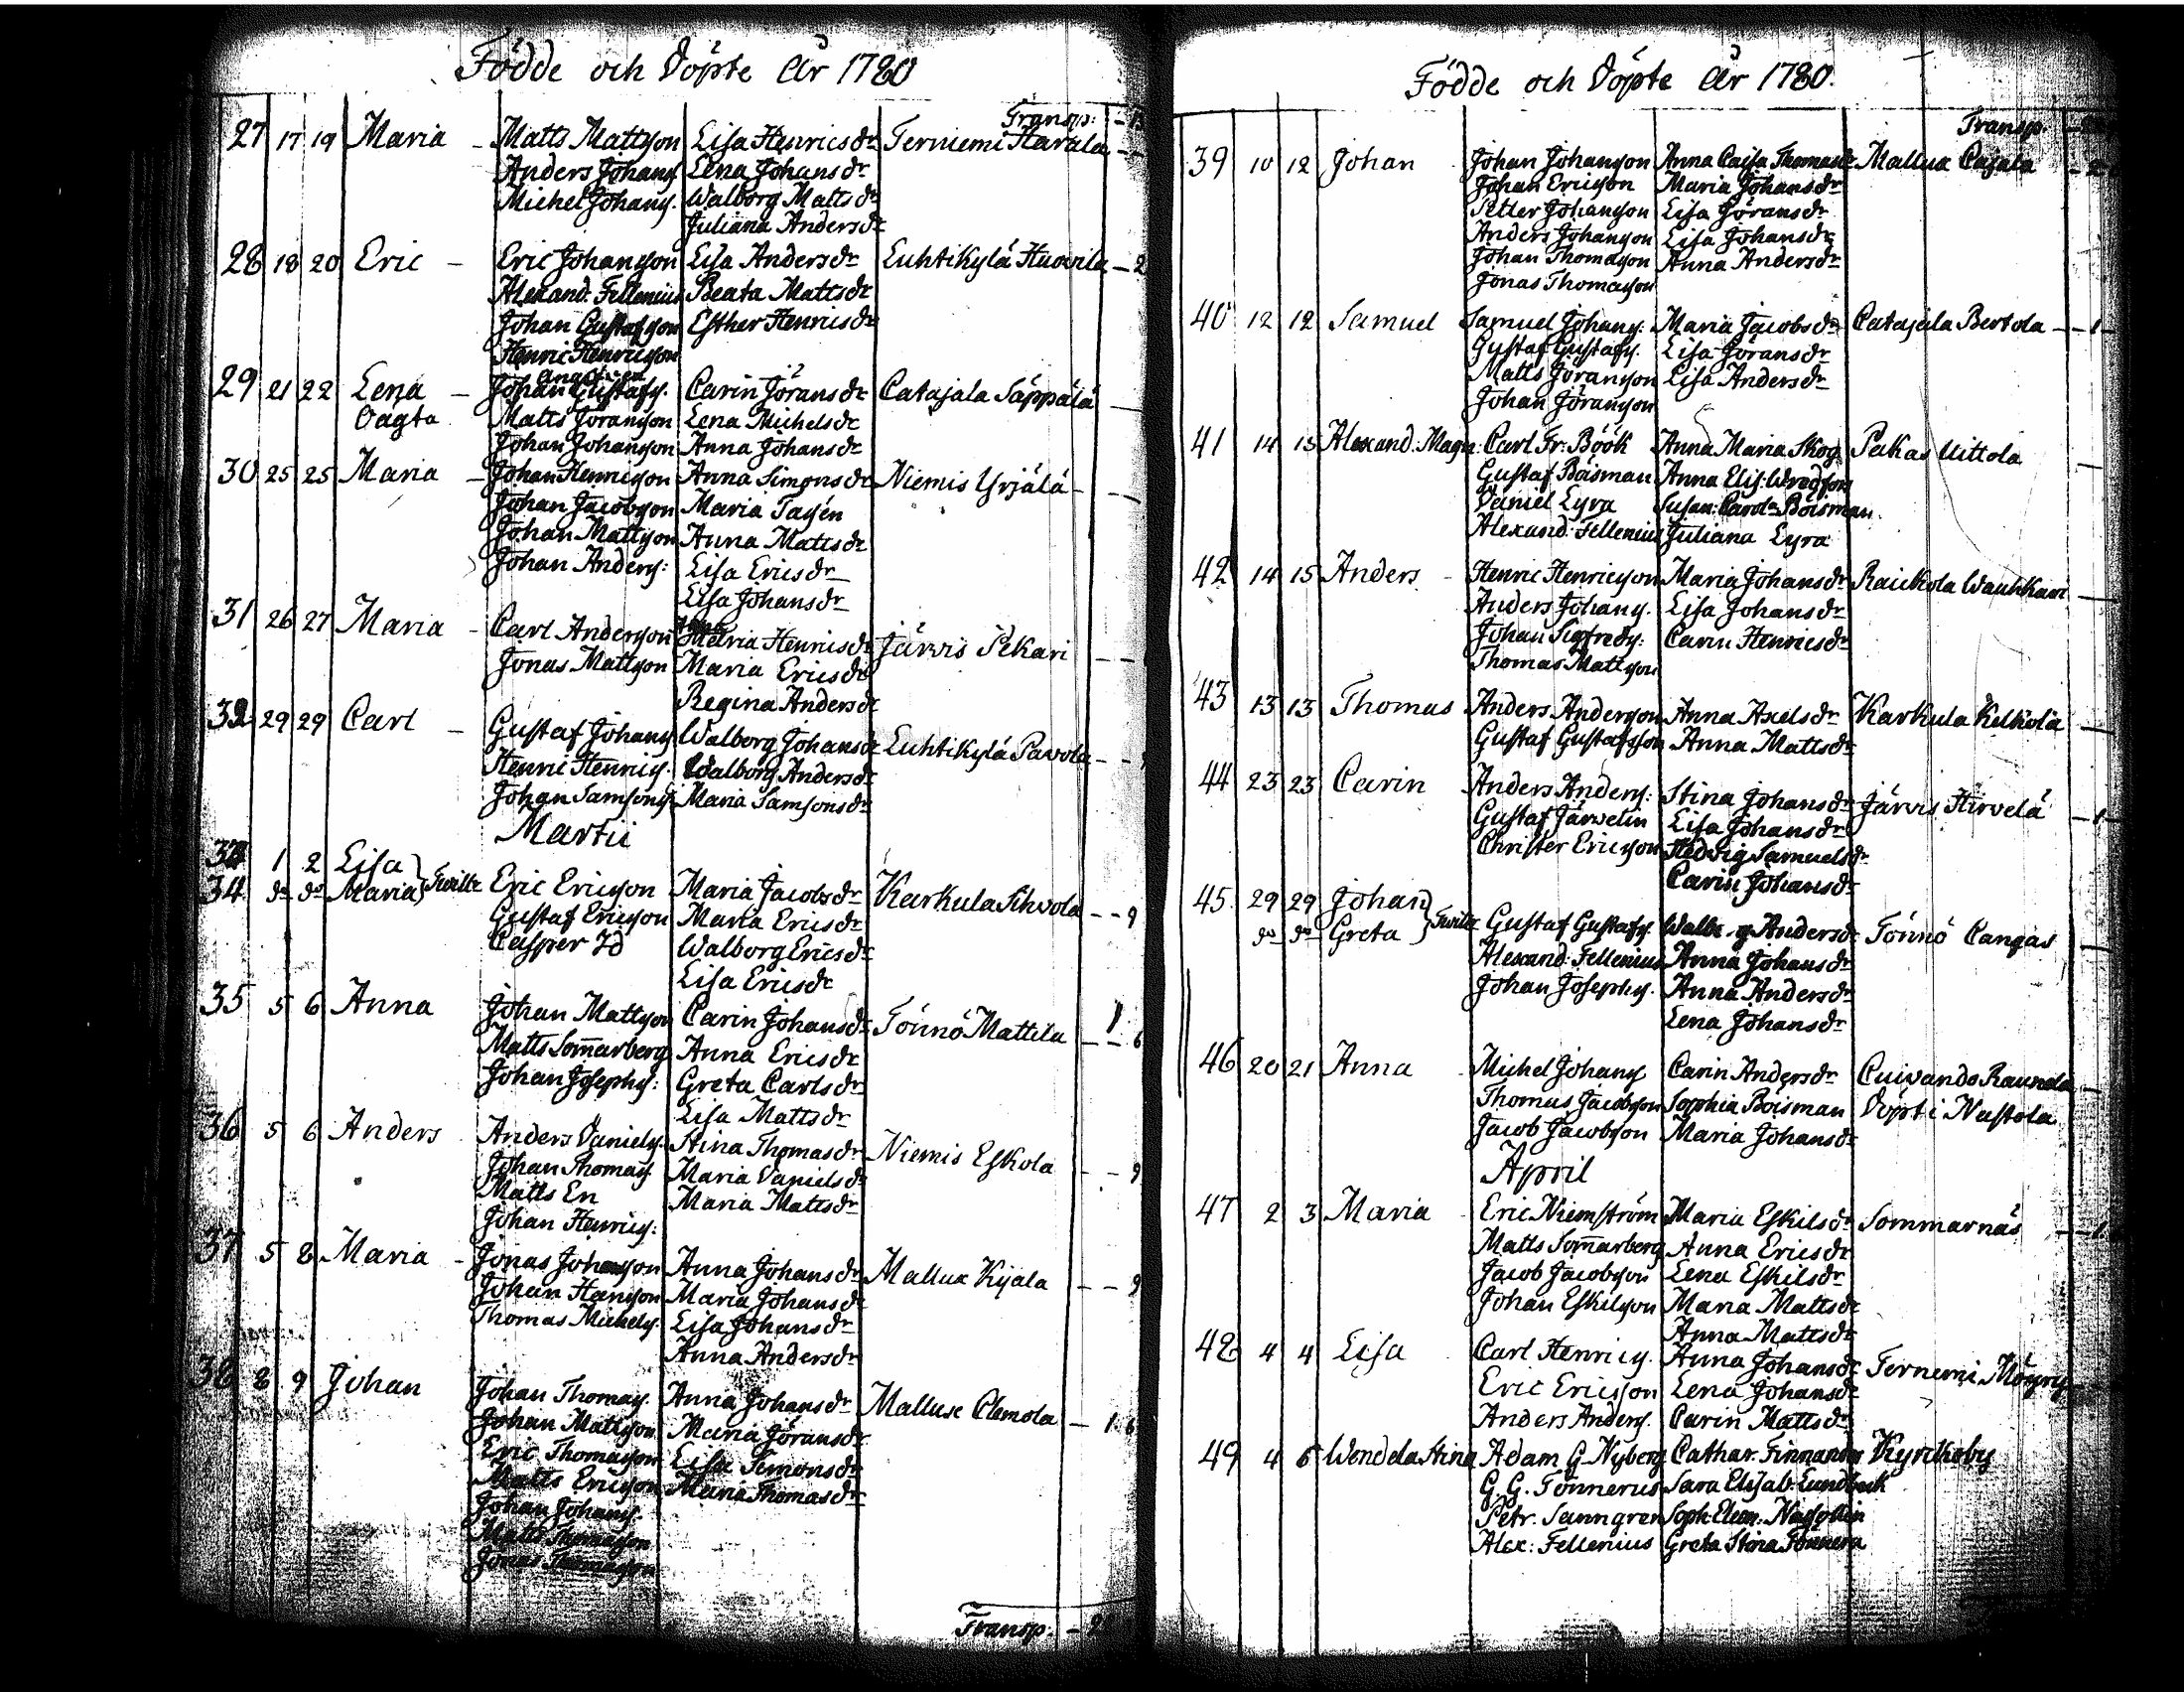 Födde och Döpte År 1780
Transp:
27 17 19 Maria - Matts Mattsson Lisa Henricsdr Terniemi Harala
Anders Johanss. Lena Johansdr
Michel Johanss. Walborg Mattsdr
Juliana Andersdr
28 18 20 Eric - Eric Johansson Lisa Andersdr Luhtikylä Huovila - 2
Alexand: Fellenius Beata Mattsdr
Johan Gustafsson Esther Henricsdr
Henric Henricsson
29 21 22 Lena - Johan Gustafss. Carin Jöransdr Catajala Säppälä
Oägta Matts Joransson Lena Michelsdr
Johan Johansson Anna Johansdr
30 25 25 Maria - Johan Henricsson Anna Simonsdr Niemis Yrjälä
Johan Jacobsson Maria
Johan Mattsson Anna Mattsdr
Johan Anderss: Lisa Ericsdr
Lisa Johansdr
31 26 27 Maria - Carl Andersson Maria Henricsdr Järvis Pekari
Jonas Mattsson Maria Ericsdr
Regina Andersdr
32 29 29 Carl - Gustaf Johanss Walborg Johansdr Luhtikylä Pavola
Henric Henricss. Walborg Andersdr
Johan Samsonss. Maria Samsonsdr
Martii
33 1 2 Lisa
34 do do Maria } Twill: Eric Ericsson Maria Jacobsdr Karkula Sihvola - - 9
Gustaf Ericsson Maria Ericsdr
Casper Id Walborg Ericsdr
Lisa Ericsdr
35 5 6 Anna Johan Mattsson Carin Johansdr Tönnö Mattila - - 6
Matts Som̄arberg Anna Ericsdr
Johan Josephss: Greta Carlsdr
Lisa Mattsdr
36 5 6 Anders Anders Danielss. Stina Thomasdr Niemis Eskola - - 9
Johan Thomass Maria Danielsdr
Matts En Maria Mattsdr
Johan Henricss:
37 5 8 Maria - Jonas Johansson Anna Johansdr Mallux Kijala - - 9
Johan Hansson Maria Johansdr
Thomas Michelss. Lisa Johansdr
Anna Andersdr
38 8 9 Johan Johan Thomass. Anna Johansdr Mallux Clemola - 1. 6
Johan Mattsson Maria Jöransdr
Eric Thomasson Lisa Simonsdr
Matts Ericsson Maria Thomasdr
Johan Johanss.
Matts Thomasson
Jonas Thomasson
Transp.
Födde och Döpte År 1780.
Transp.
39 10 12 Johan Johan Johansson Anna Caisa Thomasdr Mallux Cajala
Johan Ericsson Maria Johansdr
Petter Johansson Lisa Göransdr
Anders Johansson Lisa Johansdr
Johan Thomasson Anna Andersdr
Jonas Thomasson
40 12 12 Samuel Samuel Johanss: Maria Jacobsdr Catajala Bertola - 1
Gustaf Gustafss. Lisa Göransdr
Matts Joransson Lisa Andersdr
Johan Joransson
41 14 15 Alexand: Magn: Carl Fr: Böök Anna Maria Skog Pakas Uittola
Gustaf Böisman Anna Elis: Wredfors
Daniel Lyra Susan: Carol: Böisman
Alexand: Fellenius Juliana Lyra
42 14 15 Anders - Henric Henricsson Maria Johansdr Raickola Wauhkari
Anders Johanss. Lisa Johansdr
Johan Sigfredss: Carin Henricsdr
Thomas Mattsson
43 13 13 Thomas Anders Andersson Anna Axelsdr Karkula Kelkola
Gustaf Gustafsson Anna Mattsdr
44 23 23 Carin Anders Anderss: Stina Johansdr Järvis Hirvelä - 1
Gustaf Järwelin Lisa Johansdr
Christer Ericsson Hedvig Samuelsdr
Carin Johansdr
45 29 29 Johan
do do Greta } Twill: Gustaf Gustafss. Walborg Andersdr Tönnö Cangas
Alexand: Fellenius Anna Johansdr
Johan Josephss. Anna Andersdr
Lena Johansdr
46 20 21 Anna - Michel Johanss Carin Andersdr Cuivando
Thomas Jacobsson Sophia Böisman Döpt i Nastola
Jacob Jacobsson Maria Johansdr
April
47 2 3 Maria - Eric Niemström Maria Eskilsdr Sommarnäs - 1
Matts Som̄arberg Anna Ericsdr
Jacob Jacobsson Lena Eskilsdr
Johan Eskilsson Maria Mattsdr
Anna Mattsdr
48 4 4 Lisa Carl Henricss. Anna Johansdr Terniemi
Eric Ericsson Lena Johansdr
Anders Anderss. Carin Mattsdr
49 4 6 Wendela Stina Adam G Nyberg Cathar. Kyrckoby
G. G. Tönnerus Sara Elisab: Lundbeck
Petr. Sanngren Soph: Eleon:
Alex: Fellenius Greta Stina